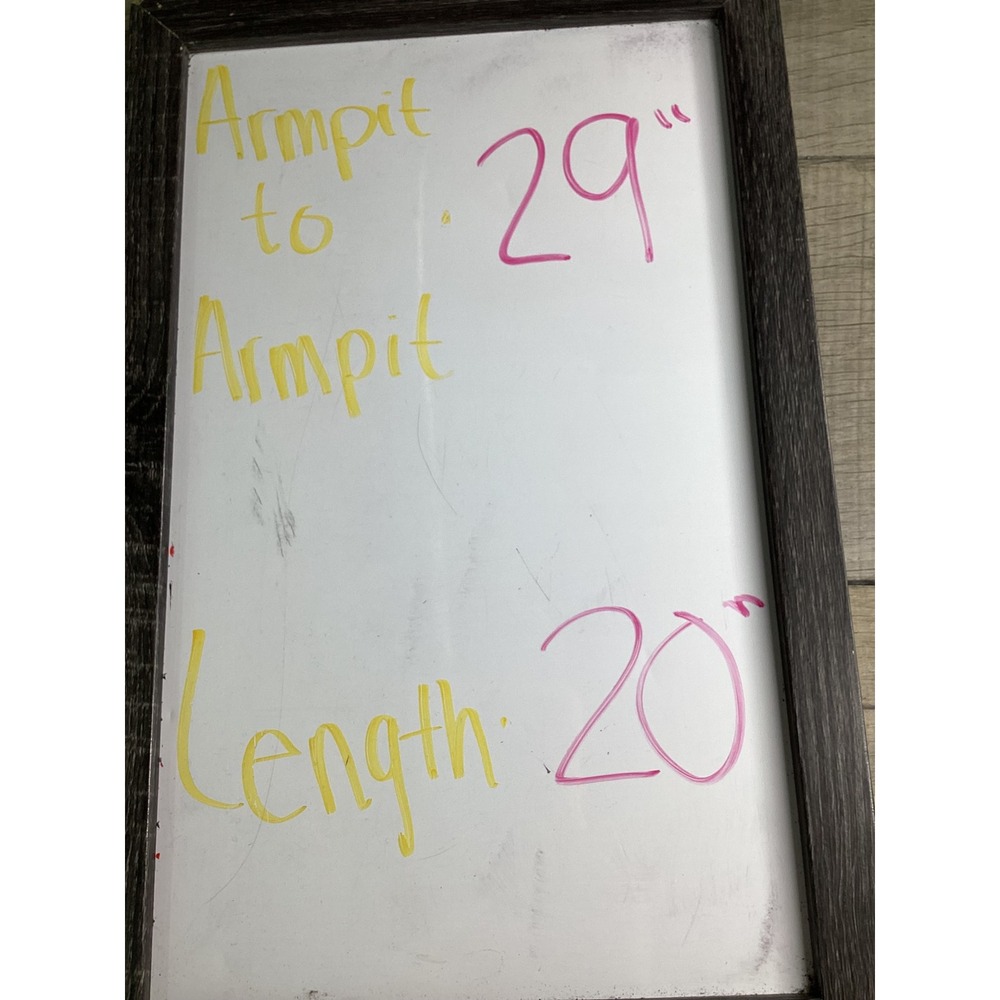 Armpit
to · 29"
Armpit
Length · 20"